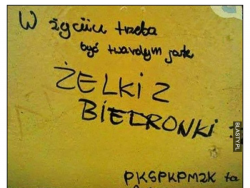 W życiu trzeba
być twardym jak
ŻELKI Z
BIEDRONKI
PKSPKPM2K to